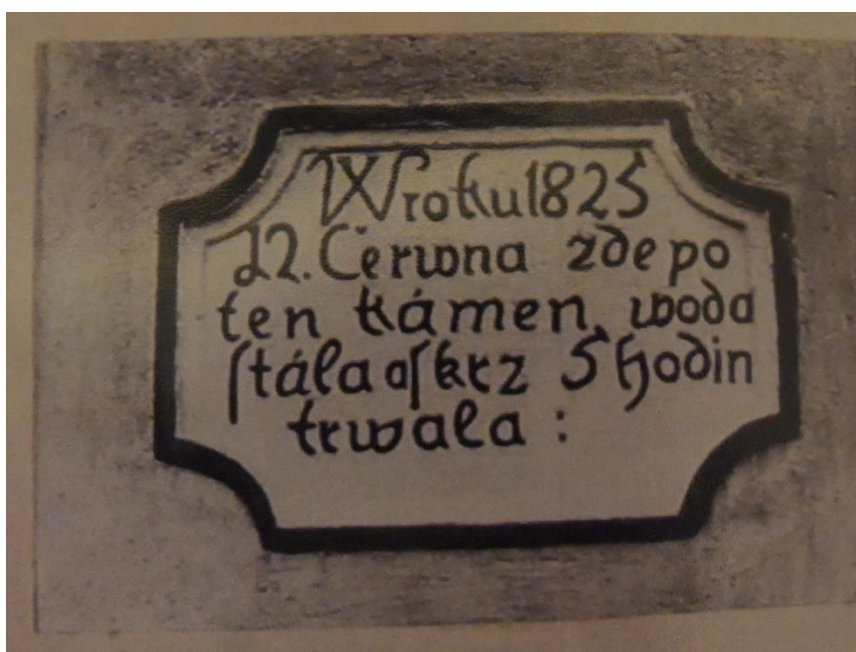 W roku 1825
22. Čerwna zde po
ten kámen woda
ſtála a ſkrz 5 hodin
trwala :